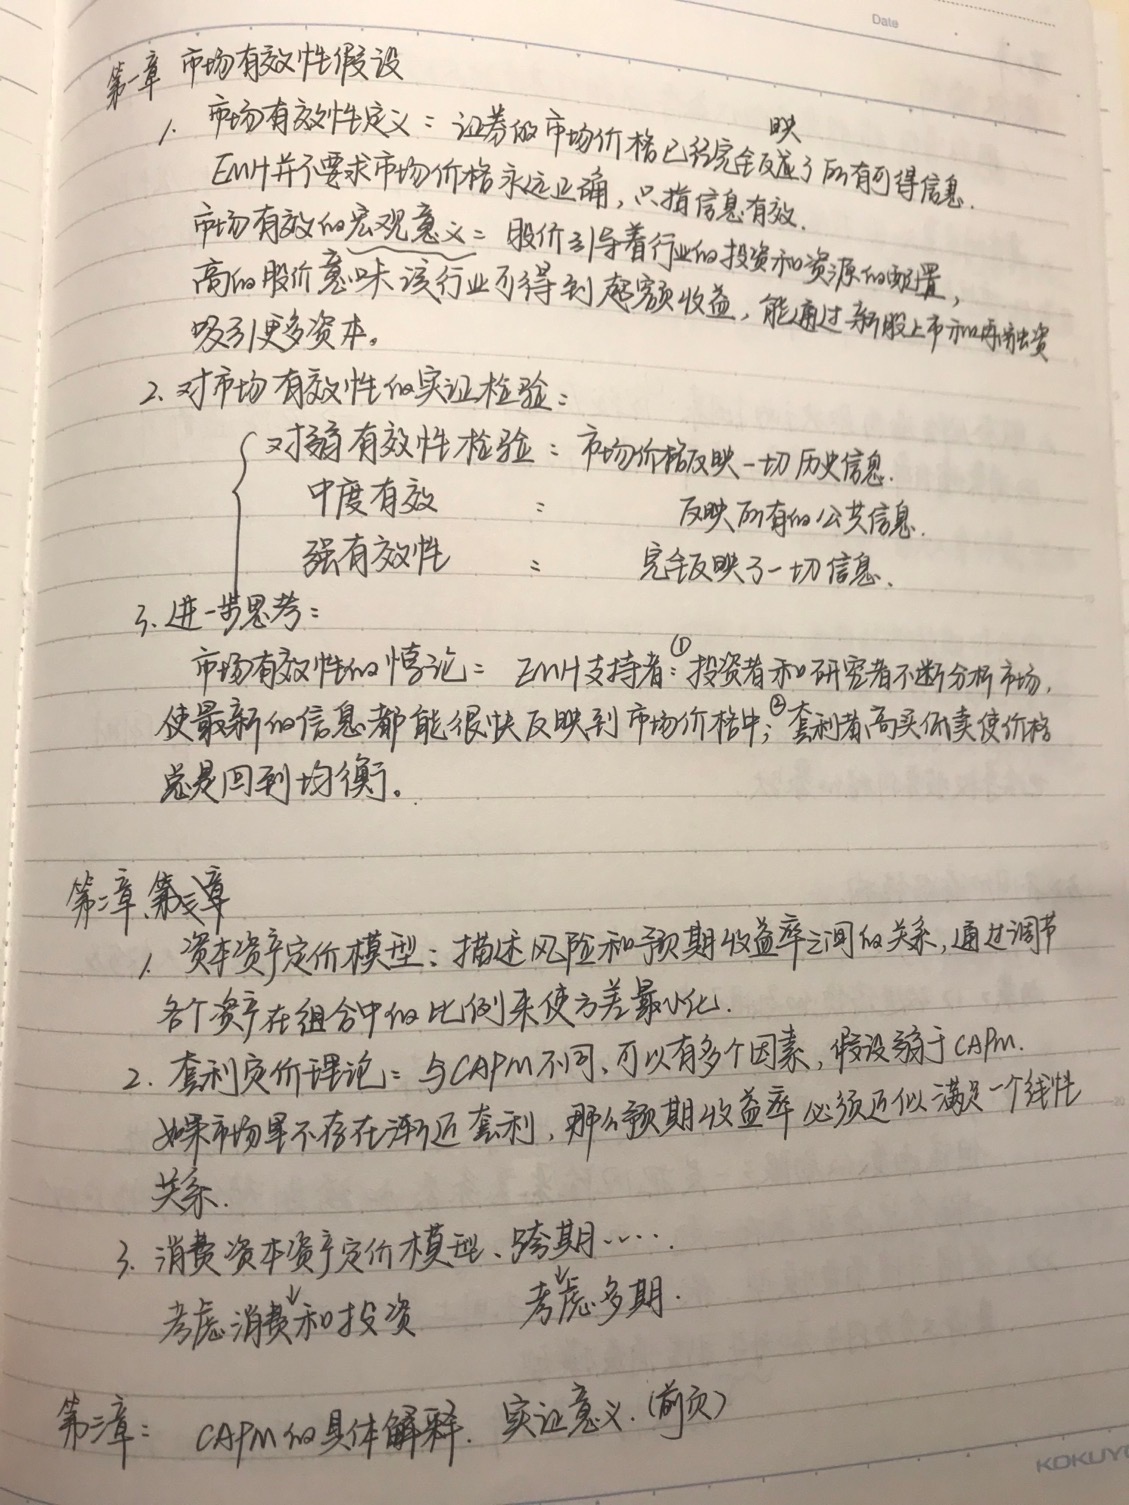 Date
第一章 市场有效性假设
1. 市场有效性定义：证券的市场价格已经完全反应了所有可得信息.
映
EMH并不要求市场价格永远正确，只指信息有效.
市场有效的宏观意义：股价引导着行业的投资和资源的配置，
高的股价意味该行业可得到超额收益，能通过新股上市和再融资
吸引更多资本。
2. 对市场有效性的实证检验：
对弱有效性检验：市场价格反映一切历史信息.
中度有效 ： 反映所有的公共信息.
强有效性 ： 完全反映了一切信息.
3. 进一步思考：
市场有效性的悖论：EMH支持者：①投资者和研究者不断分析市场，
使最新的信息都能很快反映到市场价格中；②套利者高买低卖使价格
总是回到均衡。
第二章 第三章
1. 资本资产定价模型：描述风险和预期收益率之间的关系，通过调节
各个资产在组合中的比例来使方差最小化.
2. 套利定价理论：与CAPM不同，可以有多个因素，假设弱于CAPM.
如果市场里不存在渐近套利，那么预期收益率必须近似满足一个线性
关系.
3. 消费资本资产定价模型、跨期…….
↓ ↓
考虑消费和投资 考虑多期.
第三章： CAPM的具体解释. 实证意义.（前页）
KOKUYO